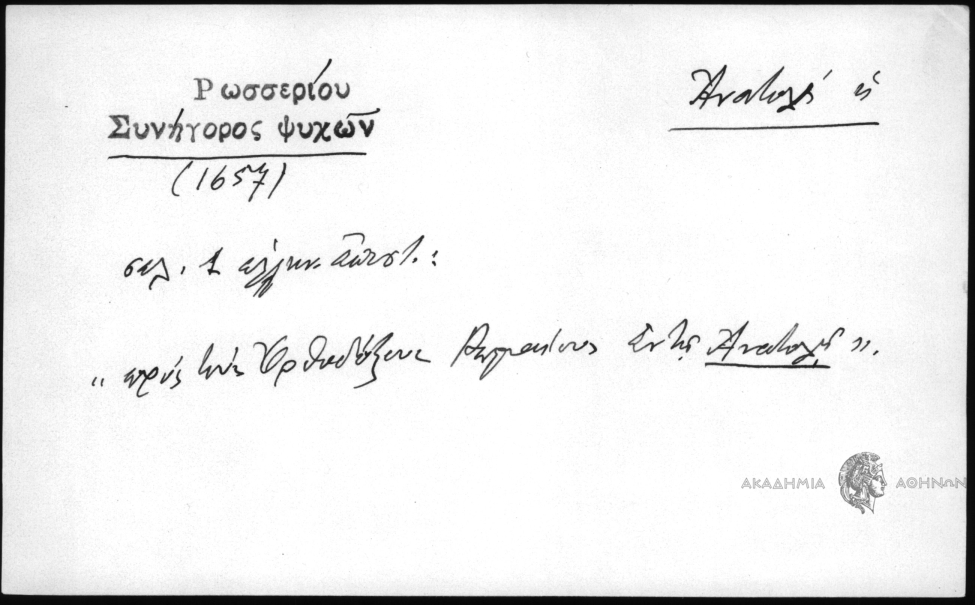 Ρωσσερίου
Συνήγορος ψυχῶν
(1657)
Ἀνατολή ἡ
σελ. 1 ἀλλην.
“ πρός τούς Ὀρθοδόξους Ῥωμαίους ἐν τῇ Ἀνατολῇ ”.
ΑΚΑΔΗΜΙΑ ΑΘΗΝΩΝ